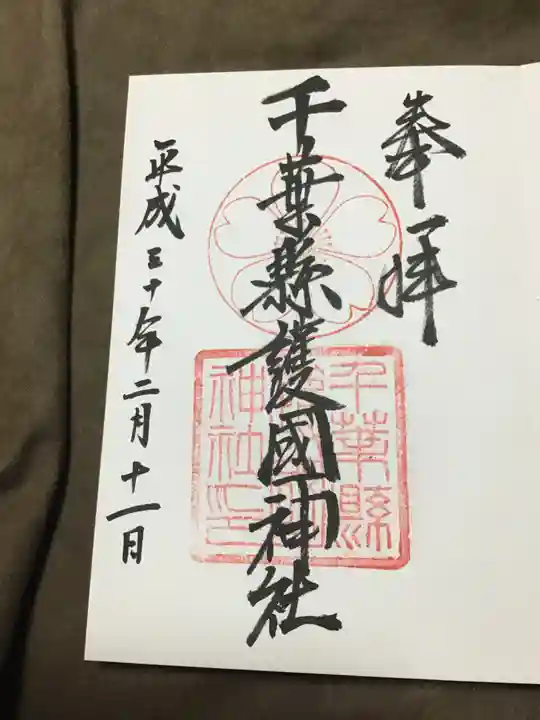 奉拝
千葉縣護國神社
平成三十年二月十一日
千葉縣
護國
神社印